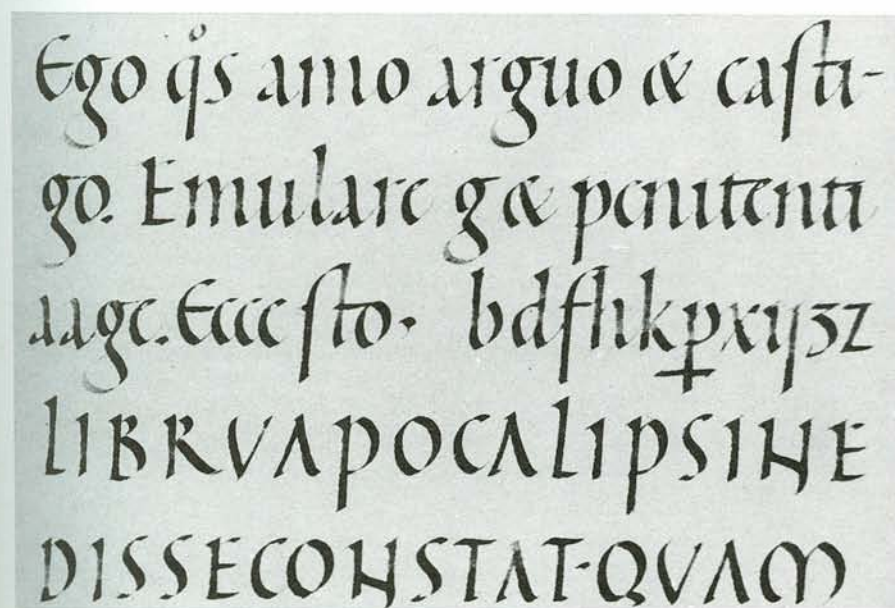 Ego qͦs amo arguo & casti-
go. Emulare g & penitenti
a age. Ecce sto. bdfhkp̱xyȝz
LIBRVAPOCALIPSINE
DISSECONSTAT·QVAM